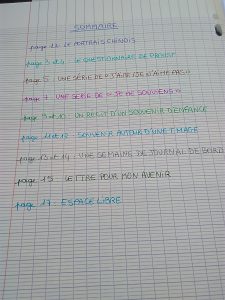 SOMMAIRE
page 1 : LE PORTRAIT CHINOIS
page 3 et 4 : LE QUESTIONNAIRE DE PROUST
page 5 : UNE SÉRIE DE « J'AIME / JE N'AIME PAS »
page 7 : UNE SÉRIE DE « JE ME SOUVIENS »
page 9 et 10 : UN RÉCIT D'UN SOUVENIR D'ENFANCE
page 11 et 12 : SOUVENIR AUTOUR D'UNE IMAGE
page 13 et 14 : UNE SEMAINE DE JOURNAL DE BORD
page 15 : LETTRE POUR MON AVENIR
page 17 : ESPACE LIBRE